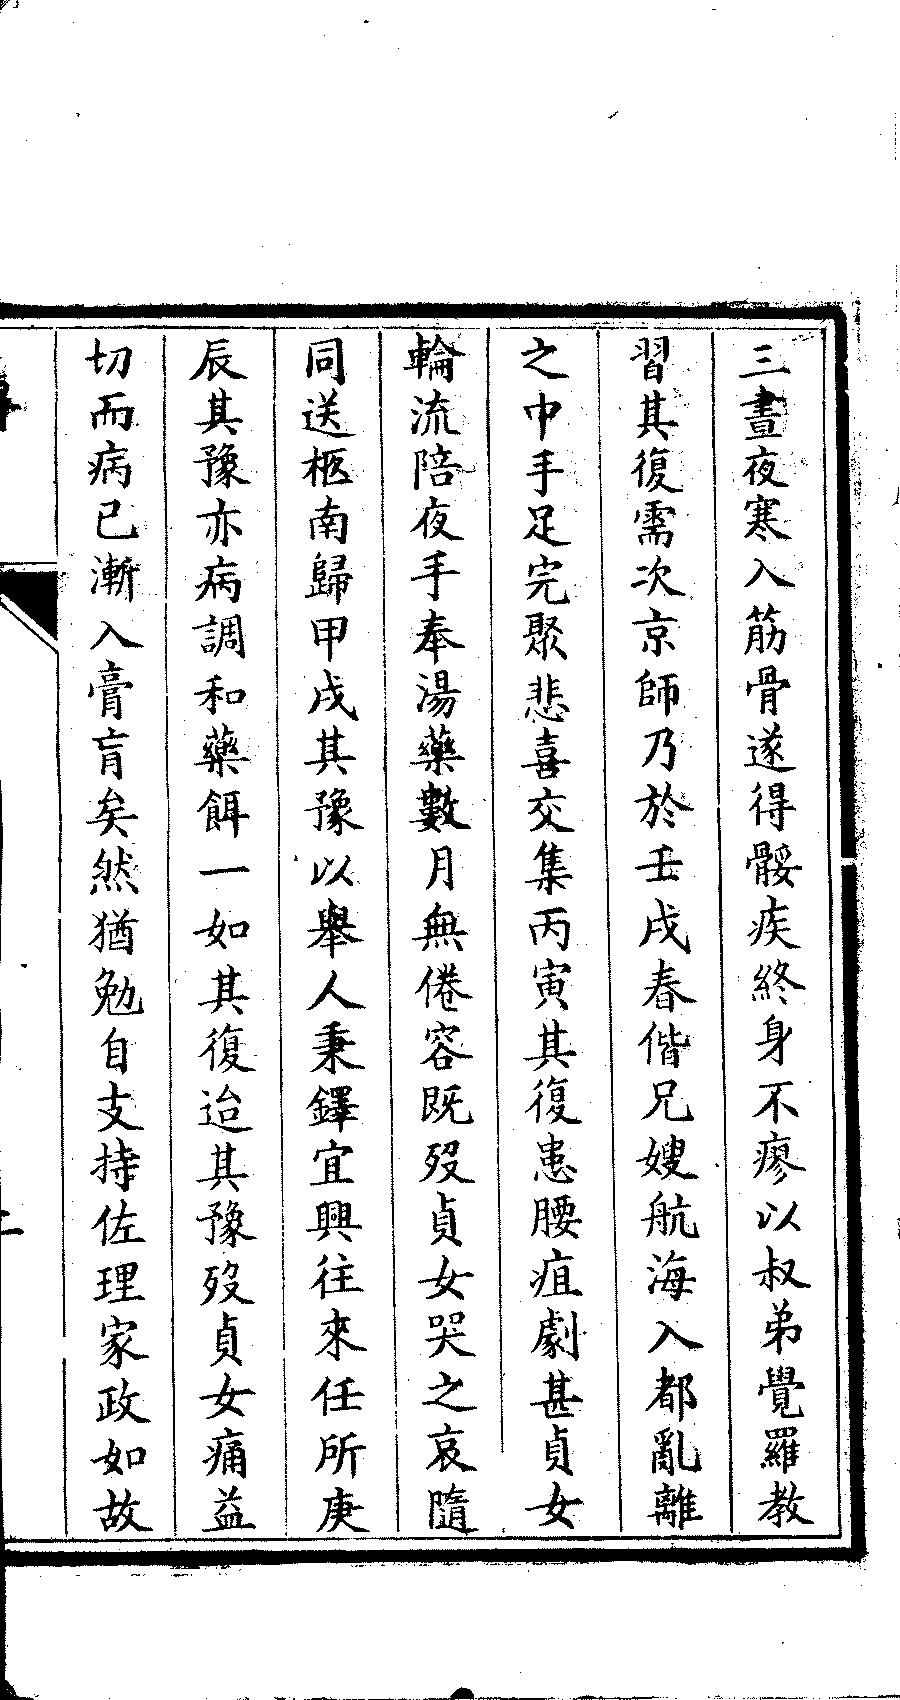 三晝夜寒入筋骨遂得骽疾終身不瘳以叔弟覺羅教
習其復需次京師乃於壬戌春偕兄嫂航海入都亂離
之中手足完聚悲喜交集丙寅其復患腰疽劇甚貞女
輪流陪夜手奉湯藥數月無倦容既歿貞女哭之哀隨
同送柩南歸甲戌其豫以舉人秉鐸宜興往來任所庚
辰其豫亦病調和藥餌一如其復迨其豫歿貞女痛益
切而病已漸入膏肓矣然猶勉自支持佐理家政如故